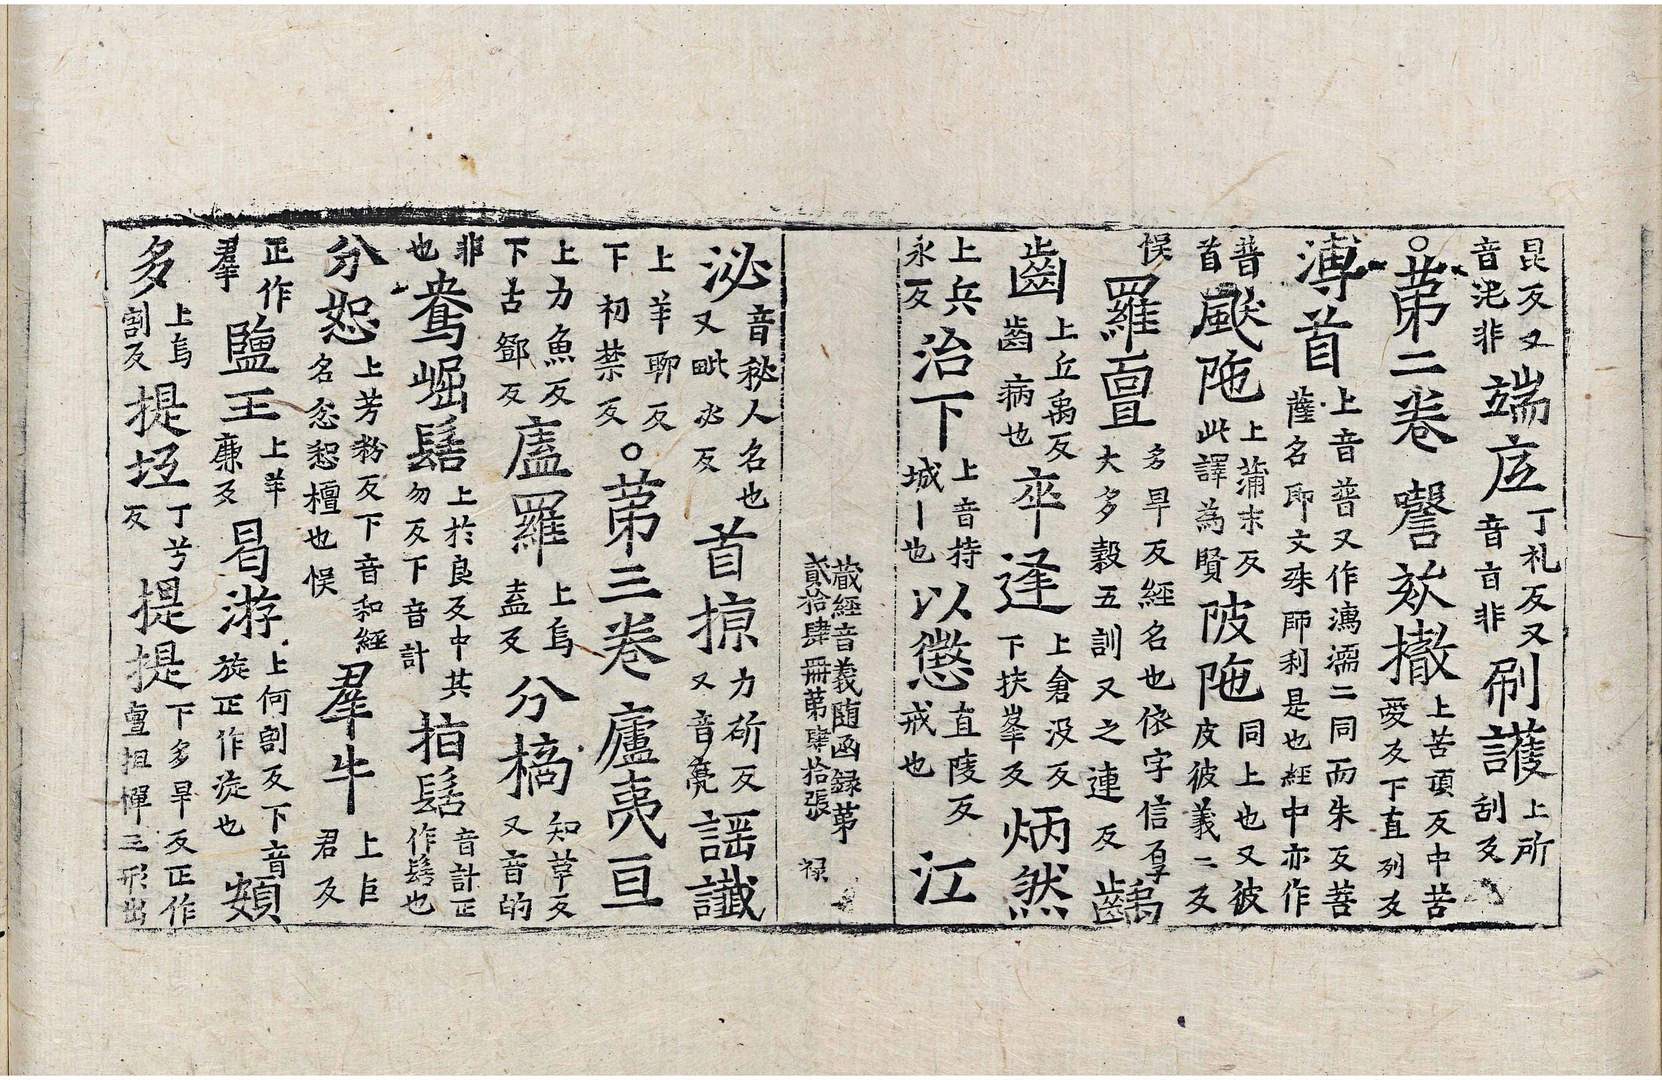 昆反又音㲽非端㡳丁礼反又音盲非刷護上所刮反
○苐二卷謦欬撤上苦頂反中苦愛反下直列反
漙首上音普又作溥濡二同而朱反菩薩名即文殊師利是也經中亦作
普首颰陁上蒲末反此譯為賢陂陁同上也又彼皮彼義二反
悮羅亶多旱反經名也依字信厚大多穀五訓又之連反齲
齒上丘禹反齒病也卒逢上倉没反下扶峯反炳然
上兵永反治下上音持城丨也以懲直陵反戒也江
藏經音義随函録第
貳拾肆冊苐肆拾張 禄
泌音秘人名也又毗必反首掠力斫反又音亮謡讖
上羊聊反下初禁反○苐三卷廬夷亘
上力魚反下古鄧反廅羅上烏盍反分摘知革反又音的
非也鴦崛髻上於良反中其勿反下音計㧞髻音計正作髻也
分惒上芳粉反下音和經名忿惒檀也悮羣牛上巨君反
正作羣鹽王上羊廉反曷游上何割反下音旋正作㳬也頞
多上烏割反提坘丁兮反提提下多旱反正作亶担憚三形出